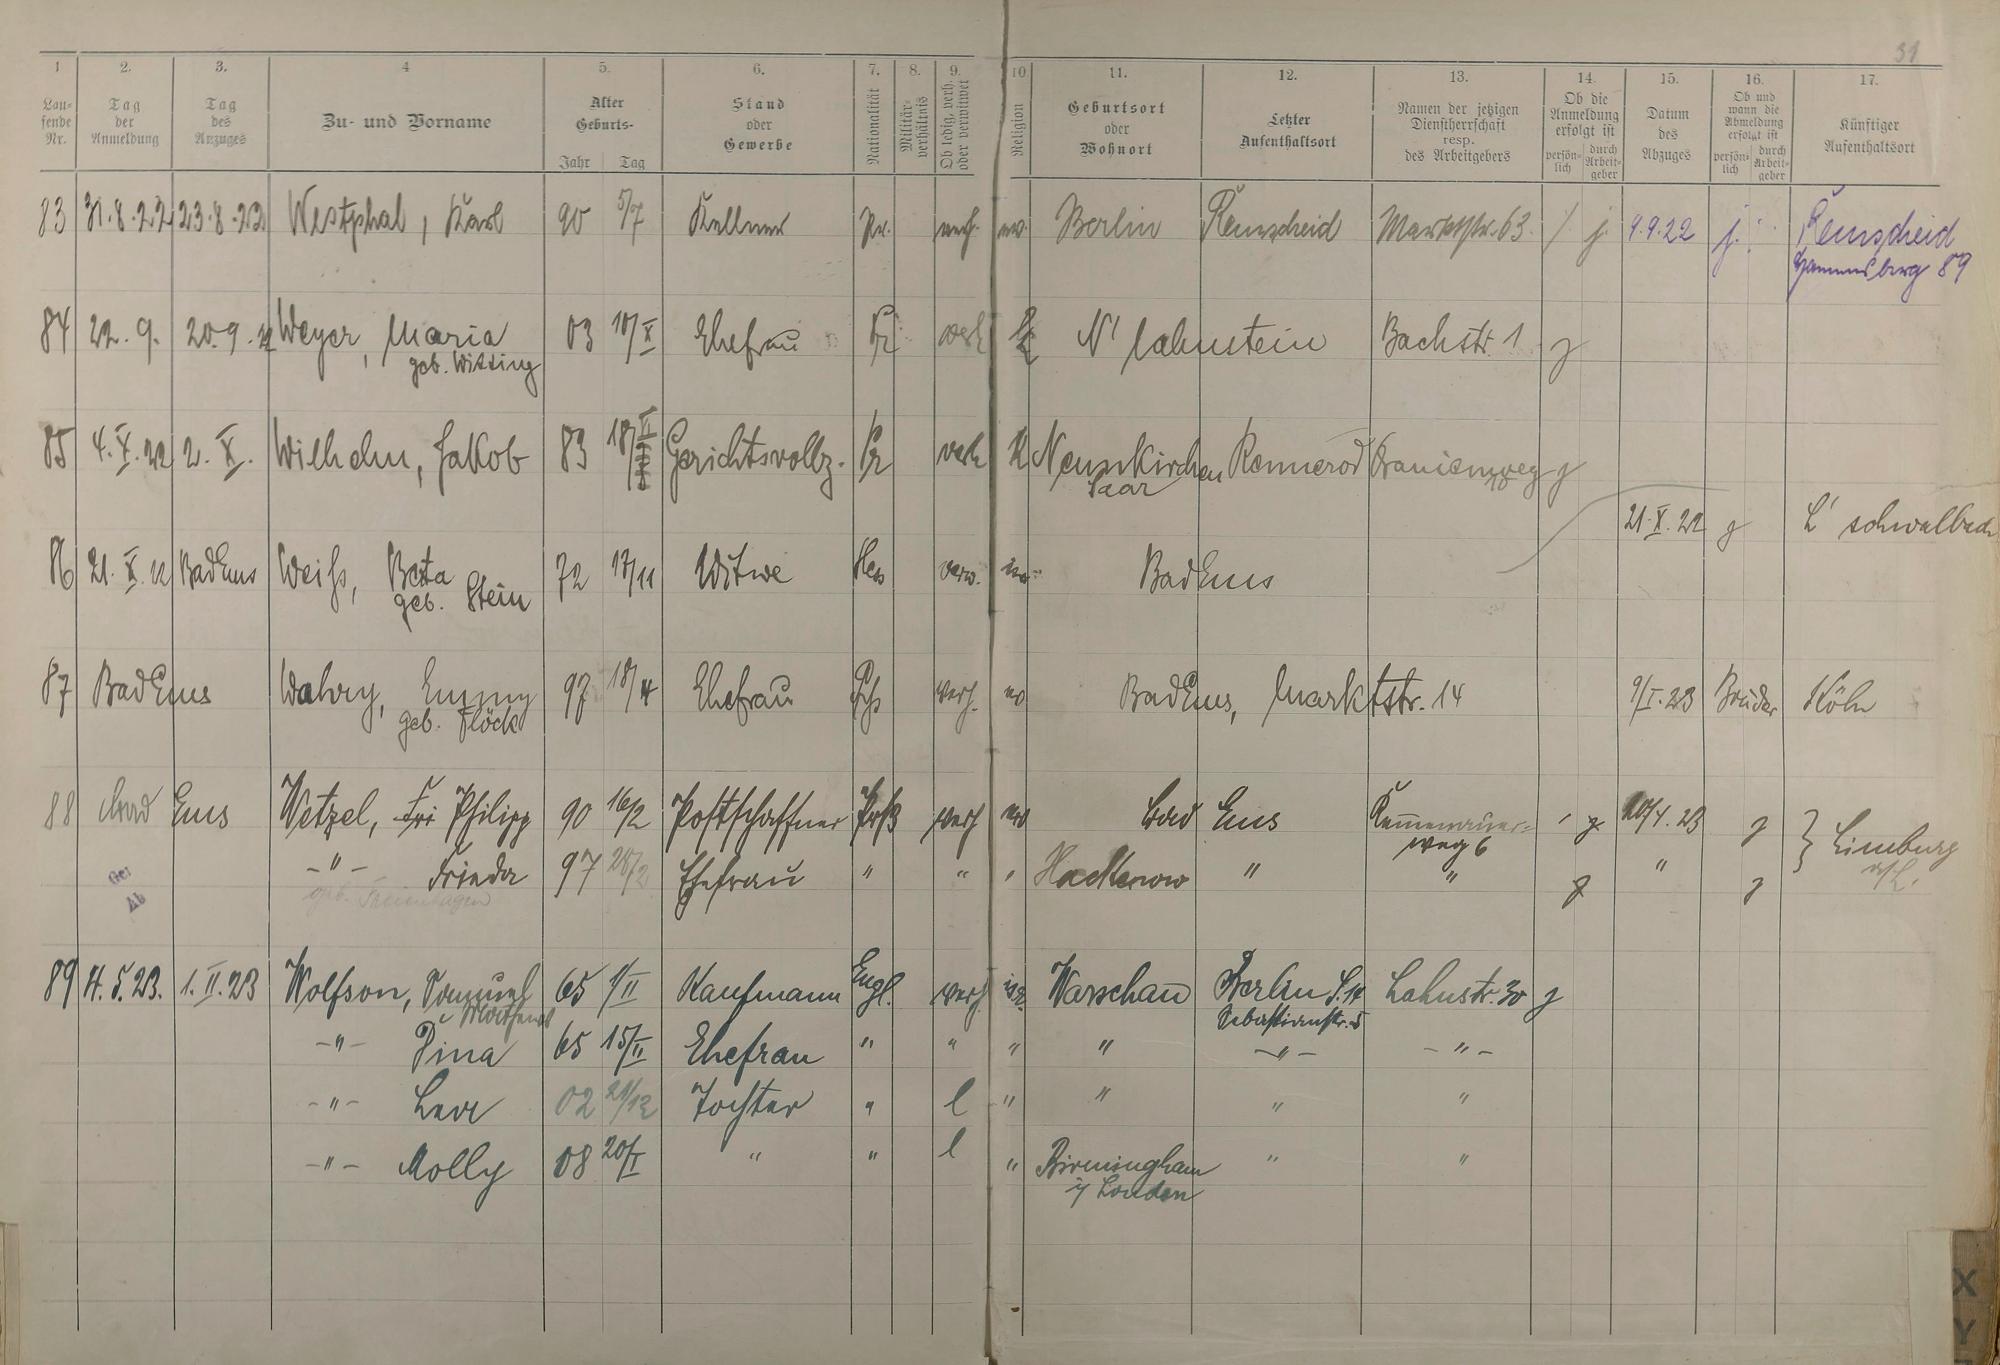 31
1 2. 3. 4 5. 6. 7. 8. 9. 10 11. 12. 13. 14. 15. 16. 17.
Lau-
fende
Nr.
Tag
der
Anmeldung
Tag
des
Anzuges
Zu- und Vorname
Alter
Geburts-
Jahr Tag
Stand
oder
Gewerbe
Nationalität
Militär-
verhältnis
Ob ledig, verh.
oder verwitwet
Religion
Geburtsort
oder
Wohnort
Letzter
Aufenthaltsort
Namen der jetzigen
Dienstherrschaft
resp.
des Arbeitgebers
Ob die
Anmeldung
erfolgt ist
persön-
lich
durch
Arbeit-
geber
Datum
des
Abzuges
Ob und
wann die
Abmeldung
erfolgt ist
persön-
lich
durch
Arbeit-
geber
Künftiger
Aufenthaltsort
83 31.8.22 23.8.23 Westphal, Karl 90 5/7 Kellner Pr. verh. ev. Berlin Remscheid Marktstr. 63. / j. 9.9.22 j. Remscheid
89
84 22. 9. 20. 9. 22 Weyer, Maria 03 10/X Ehefrau Pr verh K N' lahnstein Bachstr. 1 g
geb. Witting
85 4. X. 22 2. X. Wilhelm, Jakob 83 18/VI Gerichtsvollz. Pr verh K Neunkirchen Rennerod Oranienweg g
Saar
21. X. 22 g L' schwalbach
86 21. X. 22 Bad Ems Weiß, Berta 72 17/11 Witwe Hess verw. isr. Bad Ems
geb. Stein
87 Bad Ems Wahry, Emmy 97 18/4 Ehefrau verh. ev Bad Ems, Marktstr. 14 9/I. 23 Bruder Köln
geb. Flöck
88 Bad Ems Wetzel, Fri Philipp 90 16/2 Postschaffner Prß verh ev Bad Ems Kemmenauer- ' g 20/4. 23 g } Limburg
weg 6
a/L.
-"- Frieda 97 28/2 Ehefrau " " " Hackenow " " g " g
geb.
89 4. 5. 23. 1. II. 23 Wolfson, Samuel 65 1/II Kaufmann Engl. verh. isr. Warschau Berlin S. 14 Lahnstr. 30 g
Sebastianstr. 5
-"- Pina 65 15/II Ehefrau " " " " -"- -"-
-"- Lea 02 21/12 Tochter " l " " " "
-"- Molly 08 20/I " " l " Birmingham " "
i/ London
X
Y